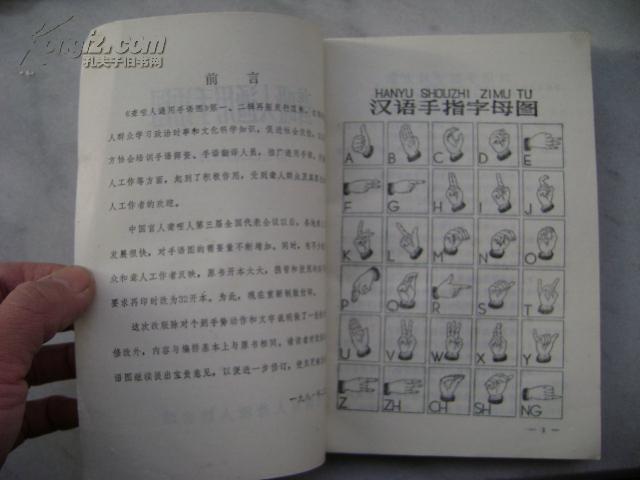 Kongfz.com
孔夫子旧书网
前言
《聋哑人通用手语图》第一、二辑再版发行
人群众学习政治时事和文化科学知识，促进社会交往，
方协会培训手语师资、手语翻译人员，推广通用手语，
人工作等方面，起到了积极作用，受到聋人群众及
人工作者的欢迎。
中国盲人聋哑人第三届全国代表会议以后，各地
发展很快，对手语图的需要量不断增加。同时，
众和聋人工作者反映，原书开本太大，携带和使用
要求再印时改为32开本。为此，现在重新制版付印。
这次改版除对个别手势动作和文字说明做了一些
修改外，内容与编排基本上与原书相同。请读者对
语图继续提出宝贵意见，以便进一步修订，使
一九八一年
HANYU SHOUZHI ZIMU TU
汉语手指字母图
A B C D E
F G H I J
K L M N O
P Q R S T
U V W X Y
Z ZH CH SH NG